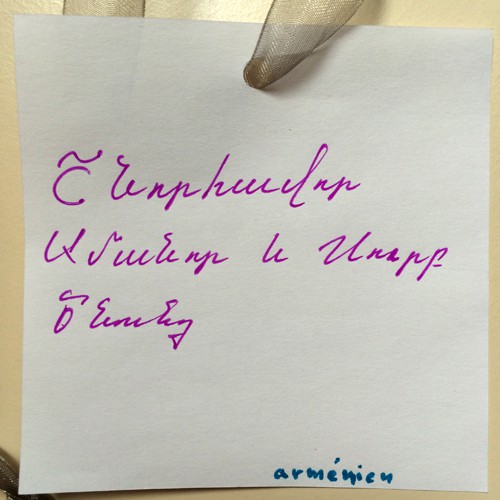 Շնորհավոր
Ամանոր և Սուրբ
Ծնունդ
arménien